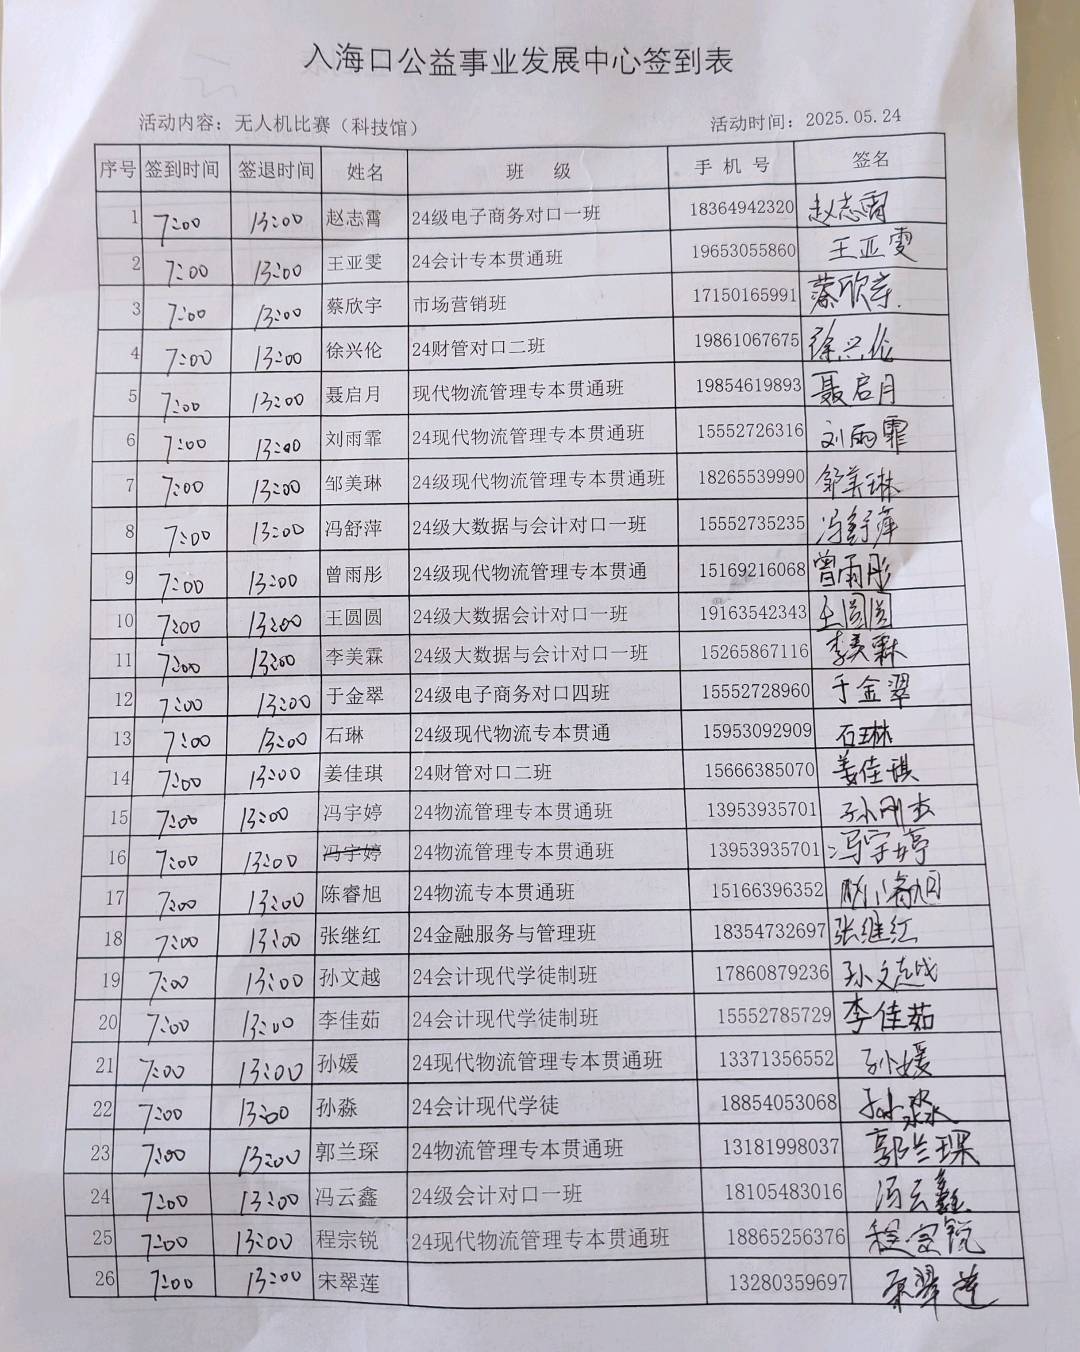 入海口公益事业发展中心签到表
活动内容：无人机比赛（科技馆） 活动时间：2025.05.24
序号 签到时间 签退时间 姓名 班 级 手 机 号 签名
1 7:00 13:00 赵志霄 24级电子商务对口一班 18364942320 赵志霄
2 7:00 13:00 王亚雯 24会计专本贯通班 19653055860 王亚雯
3 7:00 13:00 蔡欣宇 市场营销班 17150165991 蔡欣宇.
4 7:00 13:00 徐兴伦 24财管对口二班 19861067675 徐兴伦
5 7:00 13:00 聂启月 现代物流管理专本贯通班 19854619893 聂启月
6 7:00 13:00 刘雨霏 24现代物流管理专本贯通班 15552726316 刘雨霏
7 7:00 13:00 邹美琳 24级现代物流管理专本贯通班 18265539990 邹美琳
8 7:00 13:00 冯舒萍 24级大数据与会计对口一班 15552735235 冯舒萍
9 7:00 13:00 曾雨彤 24级现代物流管理专本贯通 15169216068 曾雨彤
10 7:00 13:00 王圆圆 24级大数据会计对口一班 19163542343 王圆圆
11 7:00 13:00 李美霖 24级大数据与会计对口一班 15265867116 李美霖
12 7:00 13:00 于金翠 24级电子商务对口四班 15552728960 于金翠
13 7:00 13:00 石琳 24级现代物流专本贯通 15953092909 石琳
14 7:00 13:00 姜佳琪 24财管对口二班 15666385070 姜佳琪
15 7:00 13:00 冯宇婷 24物流管理专本贯通班 13953935701
16 7:00 13:00 冯宇婷 24物流管理专本贯通班 13953935701 冯宇婷
17 7:00 13:00 陈睿旭 24物流专本贯通班 15166396352
18 7:00 13:00 张继红 24金融服务与管理班 18354732697 张继红
19 7:00 13:00 孙文越 24会计现代学徒制班 17860879236 孙文越
20 7:00 13:00 李佳茹 24会计现代学徒制班 15552785729 李佳茹
21 7:00 13:00 孙媛 24现代物流管理专本贯通班 13371356552 孙媛
22 7:00 13:00 孙淼 24会计现代学徒 18854053068 孙淼
23 7:00 13:00 郭兰琛 24物流管理专本贯通班 13181998037 郭兰琛
24 7:00 13:00 冯云鑫 24级会计对口一班 18105483016 冯云鑫
25 7:00 13:00 程宗锐 24现代物流管理专本贯通班 18865256376 程宗锐
26 7:00 13:00 宋翠莲 13280359697 宋翠莲